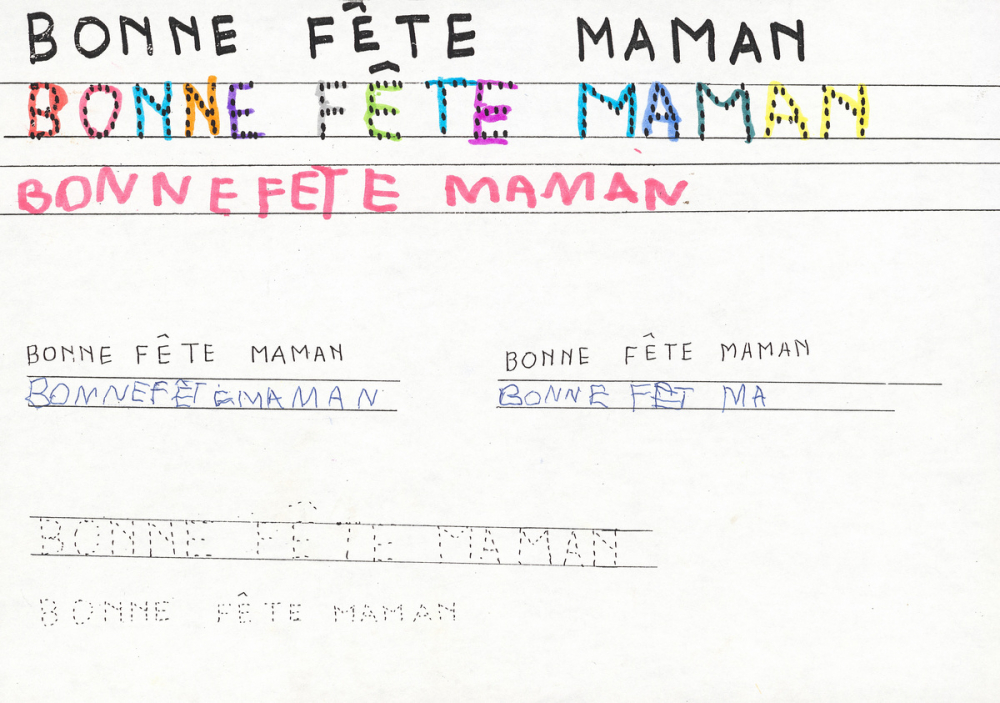 BONNE FÊTE MAMAN
BONNE FÊTE MAMAN
BONNEFETE MAMAN
BONNE FÊTE MAMAN BONNE FÊTE MAMAN
BOMNEFÊTEMAMAN BONNE FÊT MA
BONNE FÊTE MAMAN
BONNE FÊTE MAMAN